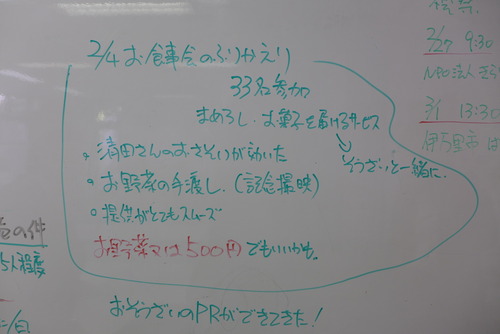 2/4 お食事会のふりかえり
33名参加
まめろし・お菓子を届けるサービス
→そうざいと一緒に。
・清田さんのおさそいが効いた
・お野菜の手渡し。(記念撮映)
・提供がとてもスムーズ
お野菜は500円でもいいかも。
おそうざいのPRができてきた!
2/27 9:30
NPO法人きら
3/1 13:30
伊万里市 は
の件
5人程度